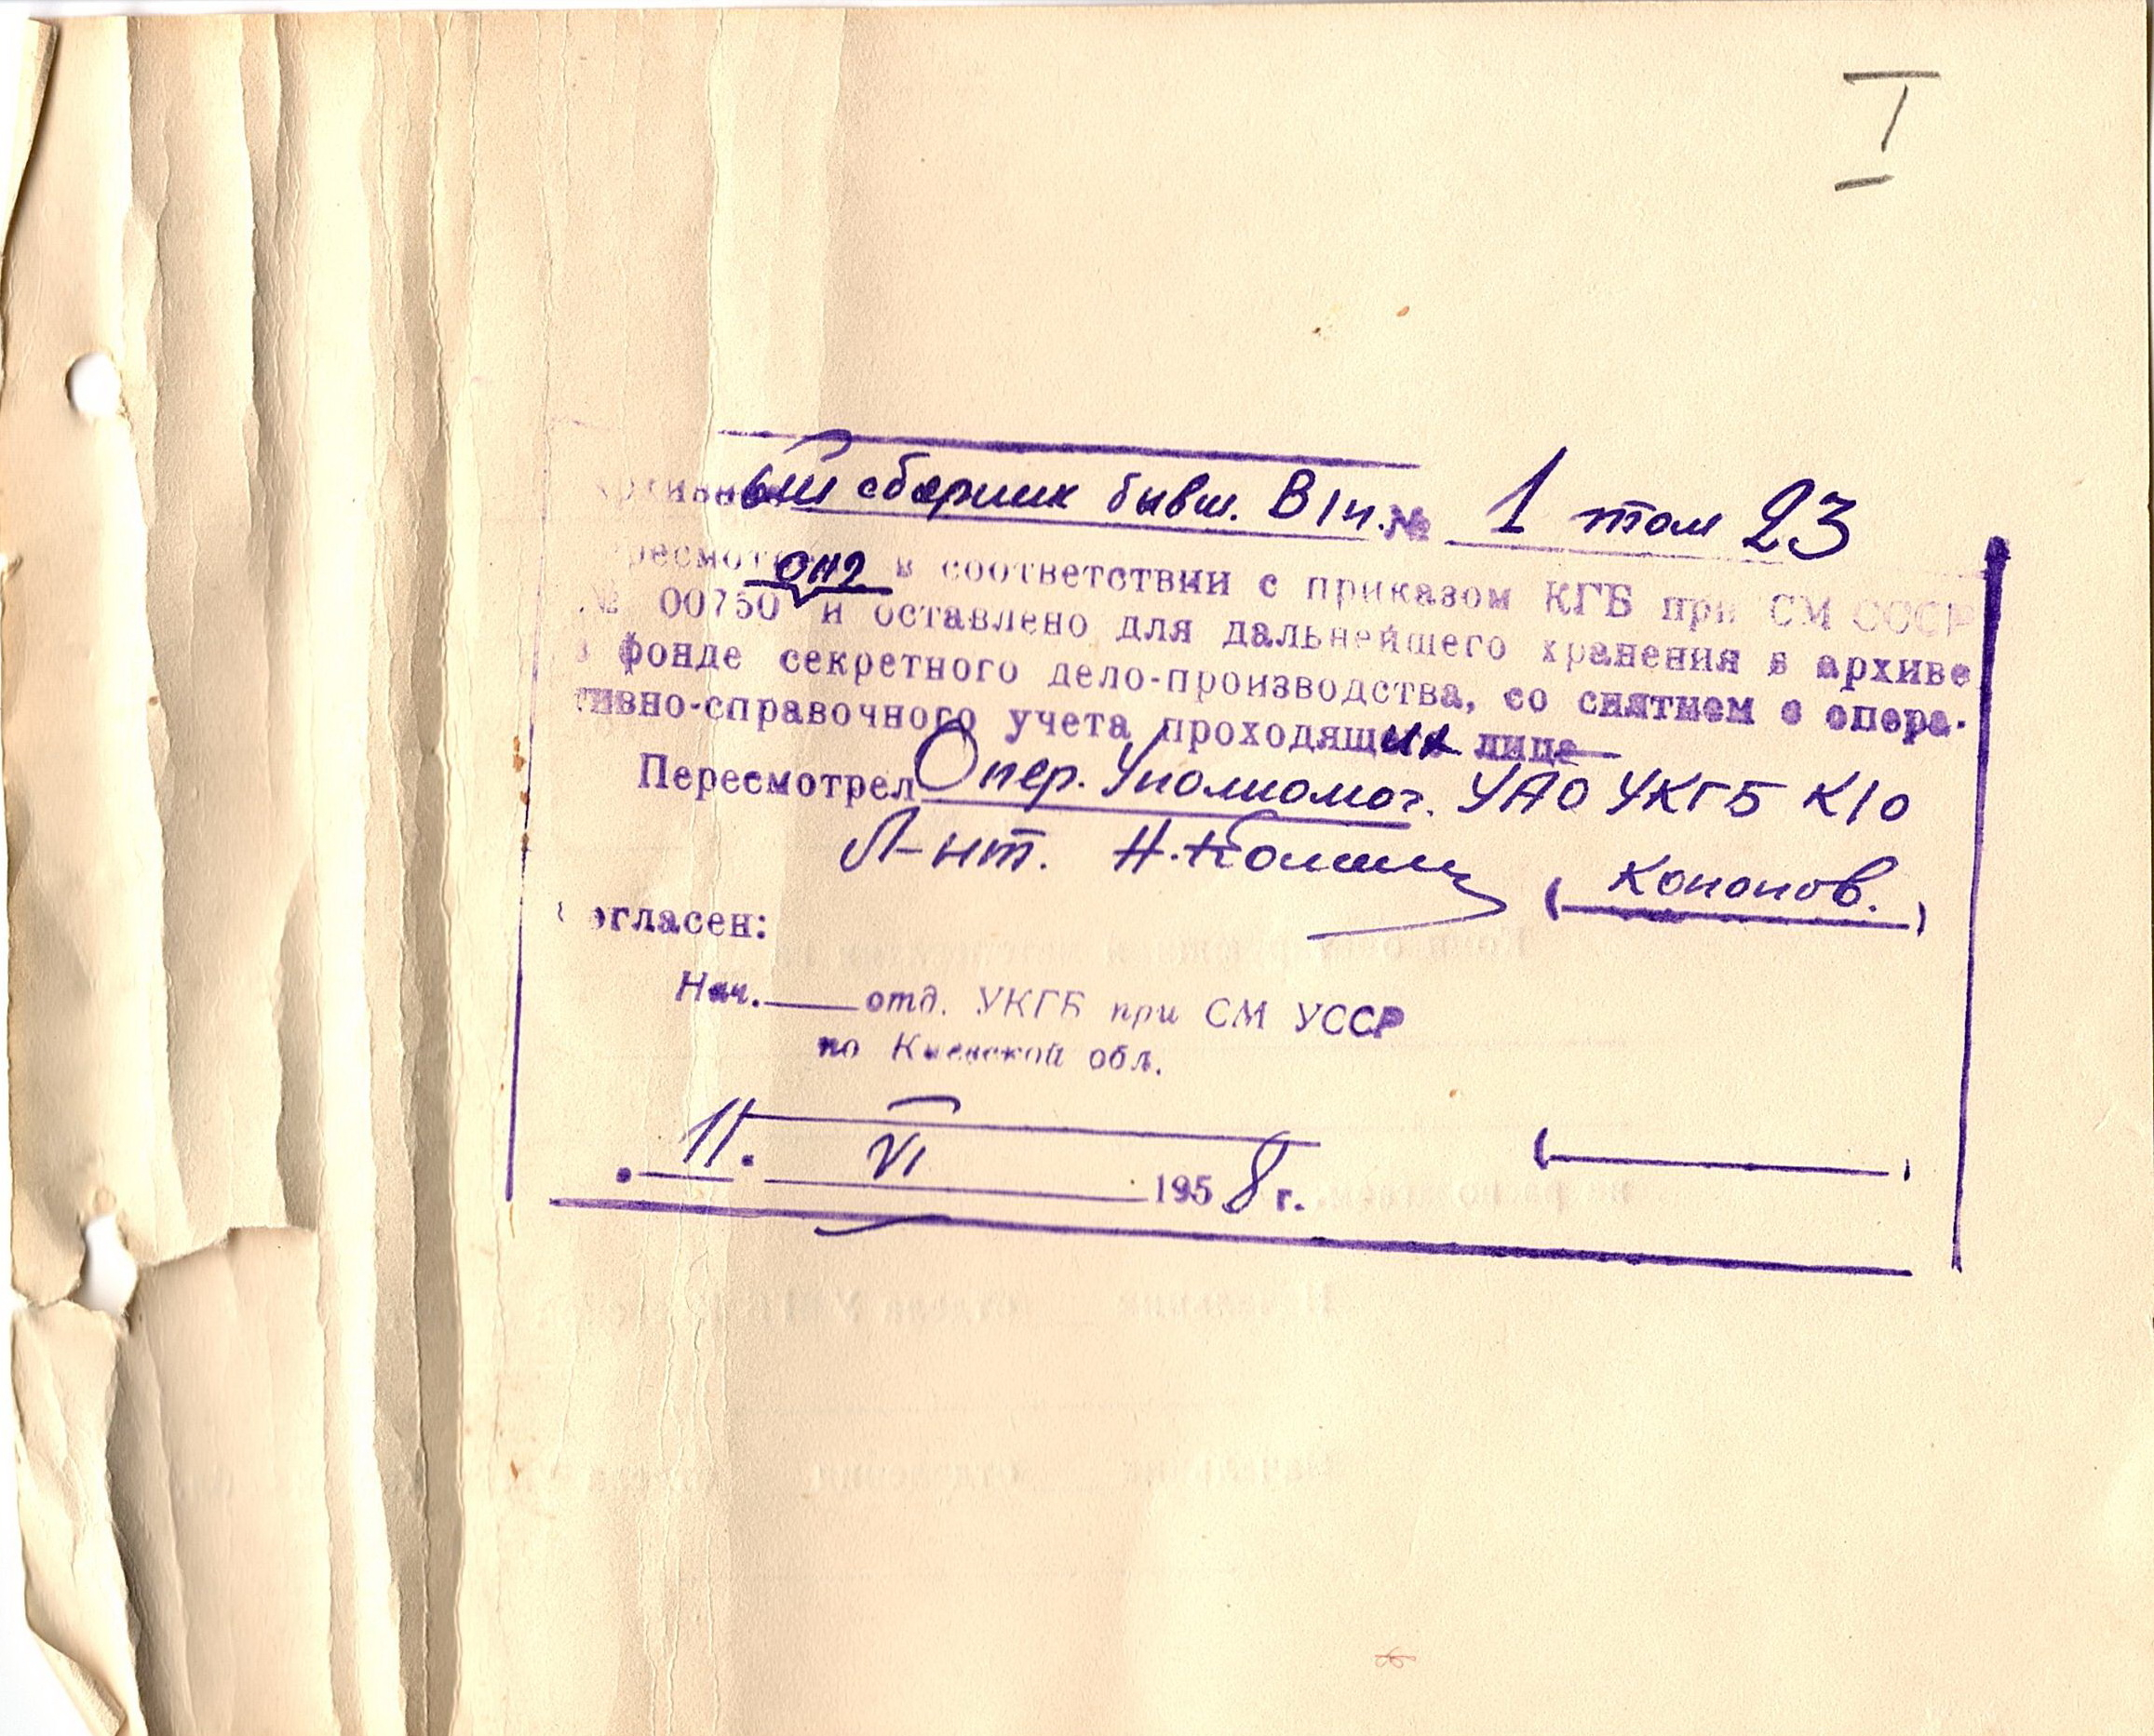 I
ый сборник бывш. В/ч. № 1 том 23
в соответствии с приказом КГБ при СМ СССР
№ 00750 и оставлено для дальнейшего хранения в архиве
фонде секретного дело-производства, со снятием с опера-
тивно-справочного учета проходящих лиц
Пересмотрел Опер. Уполномоч. УАО УКГБ К/о
Л-нт. (Кононов.)
огласен:
Нач. отд. УКГБ при СМ УССР
по Киевской обл.
11. VI 1958 г.